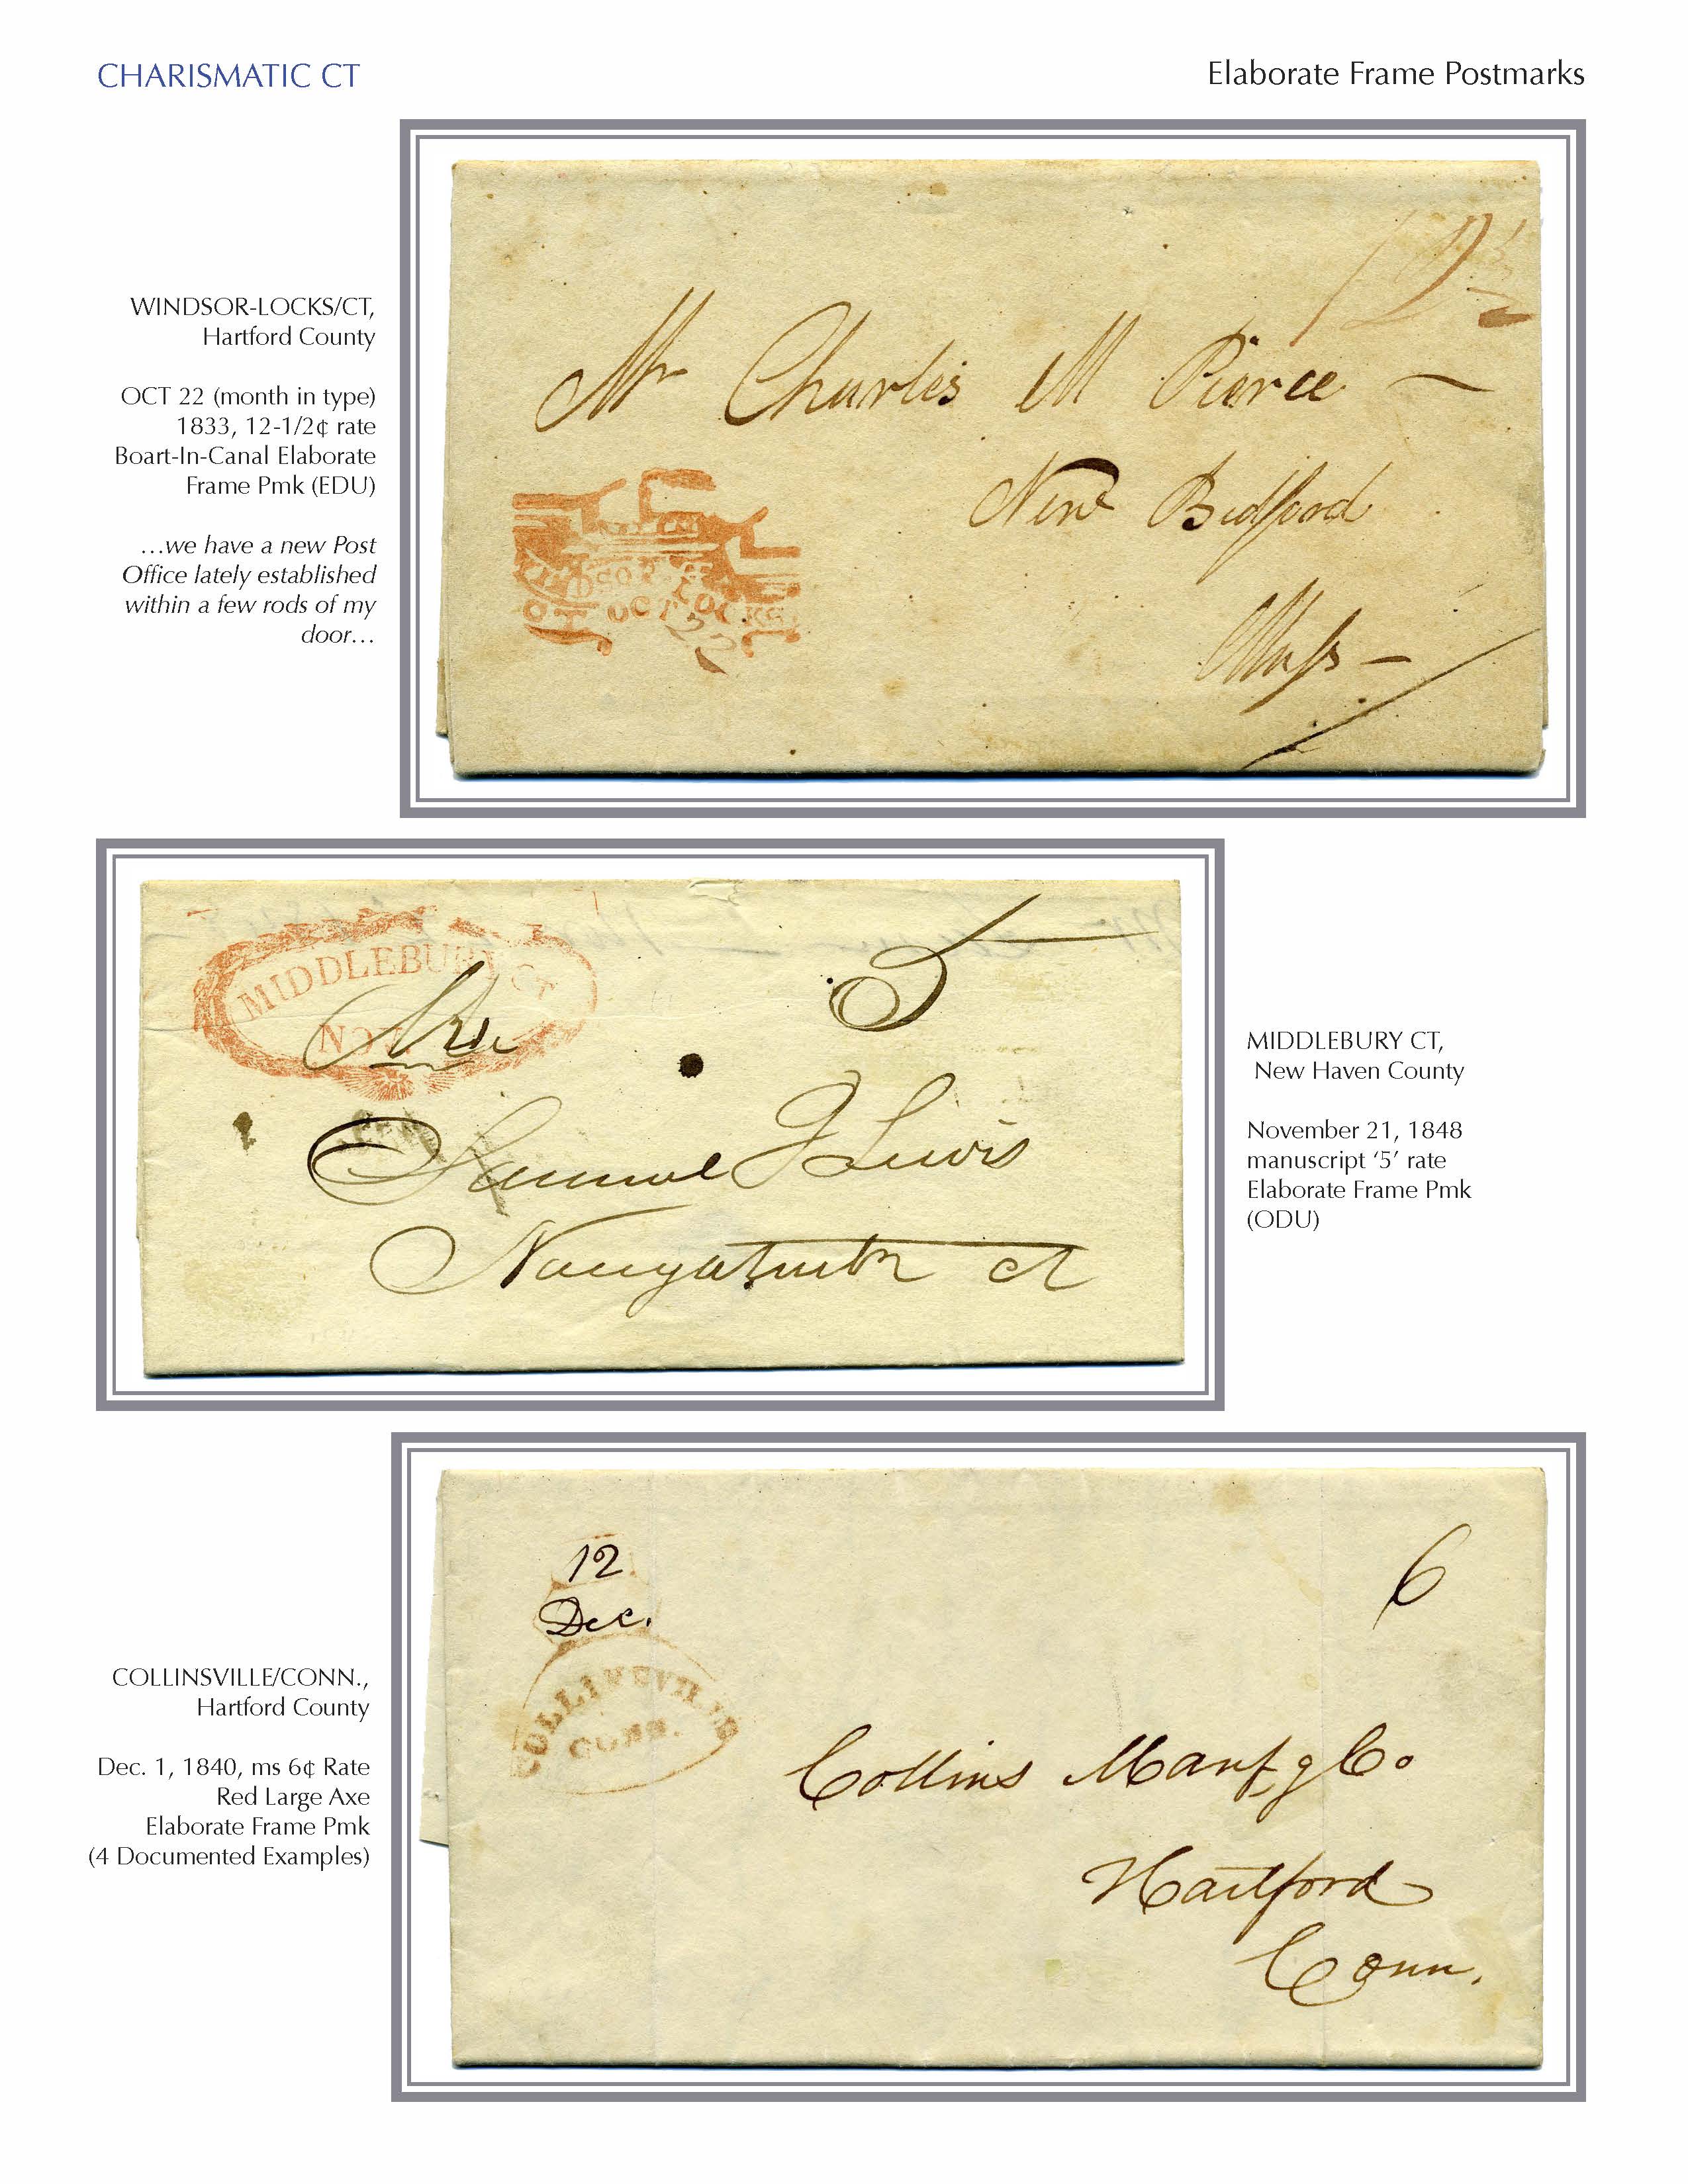 CHARISMATIC CT
Elaborate Frame Postmarks
WINDSOR-LOCKS/CT,
Hartford County
OCT 22 (month in type)
1833, 12-1/2¢ rate
Boart-In-Canal Elaborate
Frame Pmk (EDU)
…we have a new Post
Office lately established
within a few rods of my
door…
12½
Mr Charles M Pierce
New Bedford
Mass
WINDSOR
LOCKS
CT OCT 22
MIDDLEBURY CT
NOV
5
Mr
Samuel J Lewis
Naugatuck ct
MIDDLEBURY CT,
New Haven County
November 21, 1848
manuscript ‘5’ rate
Elaborate Frame Pmk
(ODU)
COLLINSVILLE/CONN.,
Hartford County
Dec. 1, 1840, ms 6¢ Rate
Red Large Axe
Elaborate Frame Pmk
(4 Documented Examples)
12
Dec.
COLLINSVILLE
CONN.
6
Collins Manfg Co
Hartford
Conn.